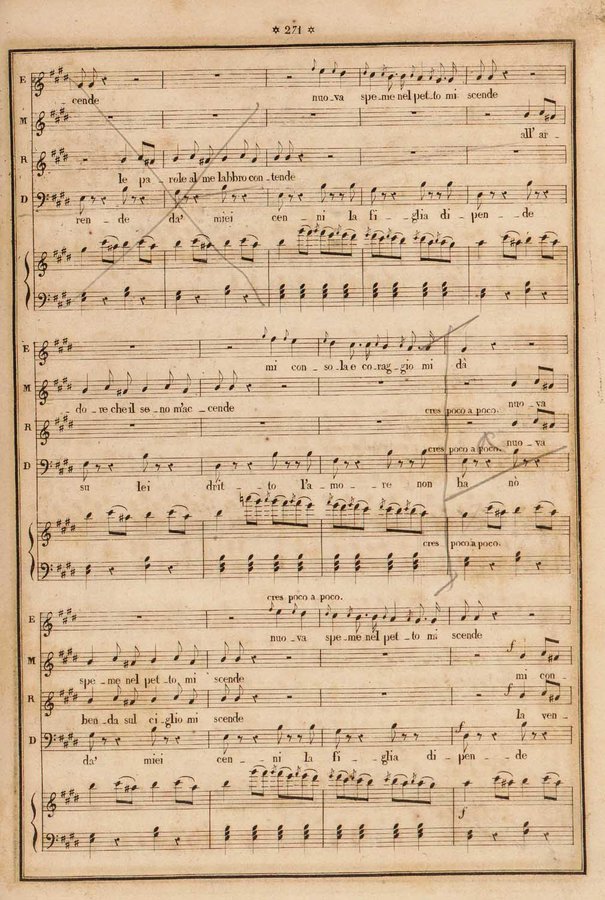 ✡ 271 ✡
E
cende nuo_va spe_me nel pet_to mi scende
M
all' ar_
R
le pa_role al me labbro con_tende
D
ren_de da' miei cen_ni la fi_glia di_pen_de
E
mi con_so_la e co_rag_gio mi dà
M
do_re che il se_no m'ac_cende nuo_va
cres poco a poco.
R
nuo_va
cres poco a poco.
D
su lei drit_to l'a_mo_re non ha nò
cres poco a poco.
cres poco a poco.
E
nuo_va spe_me nel pet_to mi scende
f
M
spe_me nel pet_to mi scende mi con_
f
R
ben_da sul ci_glio mi scende la ven_
f
D
da' miei cen_ni la fi_glia di_pen_de
f